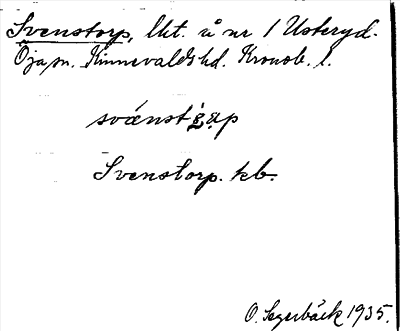 Svenstorp, lht. å nr 1 Usteryd.
Öja sn. Kinnevalds hd. Kronob. l.
Svenstorp. kb.
O. Segerbäck 1935.